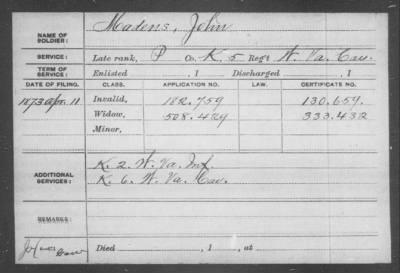 NAME OF SOLDIER: Madens, John
SERVICE: Late rank, P Co. K, 5 Reg't W. Va. Cav.
TERM OF SERVICE: Enlisted , 1 Discharged , 1
DATE OF FILING. CLASS. APPLICATION NO. LAW. CERTIFICATE NO.
1873 Apr. 11 Invalid, 182.759 130.659
Widow, 508.429 333.432
Minor,
ADDITIONAL SERVICES: K. 2. W. Va. Inf.
K. 6. W. Va. Cav.
REMARKS:
Died , 1 , at